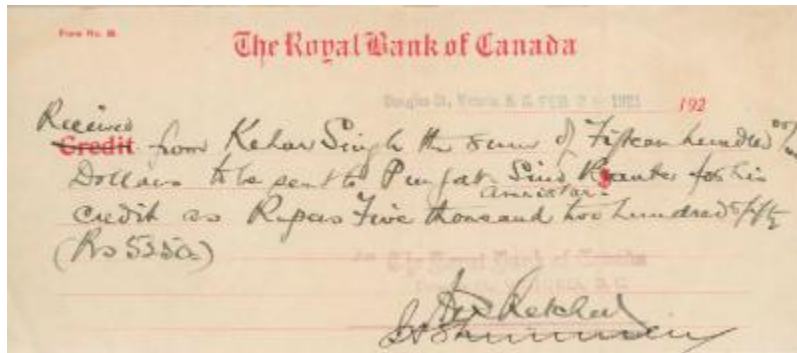 Form No.
The Royal Bank of Canada
Douglas St, FEB 1921 192
Received
Credit from Kehar Singh the sum of Fifteen hundred 00/
Dollars to be sent to Punjab Sind for his
Amritsar
credit as Rupees Five thousand two hundred & fifty
(Rs 5250)
The Royal Bank of Canada
B.C.